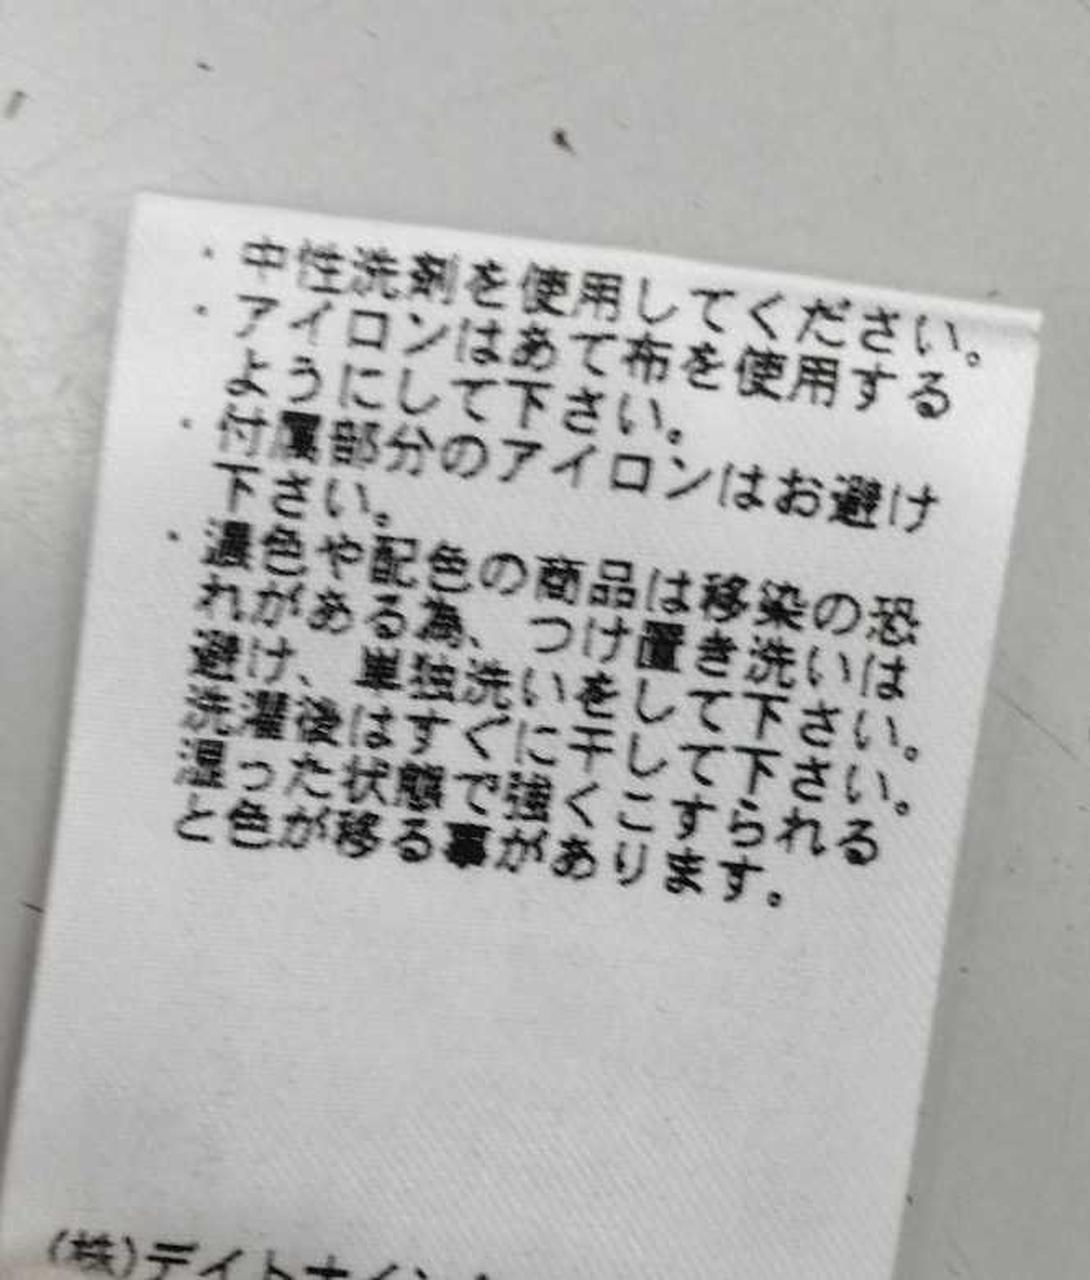 ・中性洗剤を使用してください。
・アイロンはあて布を使用する
ようにして下さい。
・付属部分のアイロンはお避け
下さい。
・濃色や配色の商品は移染の恐
れがある為、つけ置き洗いは
避け、単独洗いをして下さい。
洗濯後はすぐに干して下さい。
湿った状態で強くこすられる
と色が移る事があります。
(株)デイトナ